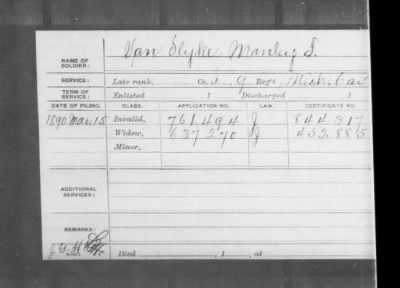 NAME OF SOLDIER: Van Slyke, Manley S.
SERVICE: Late rank, Co. I, 9 Reg't Mich. Cav
TERM OF SERVICE: Enlisted , 1 Discharged , 1
DATE OF FILING. CLASS. APPLICATION NO. LAW. CERTIFICATE NO.
1890 Mar. 15 Invalid, 761.494 844.317
Widow, 637.270 453.885
Minor,
ADDITIONAL SERVICES:
REMARKS:
Died , 1 , at